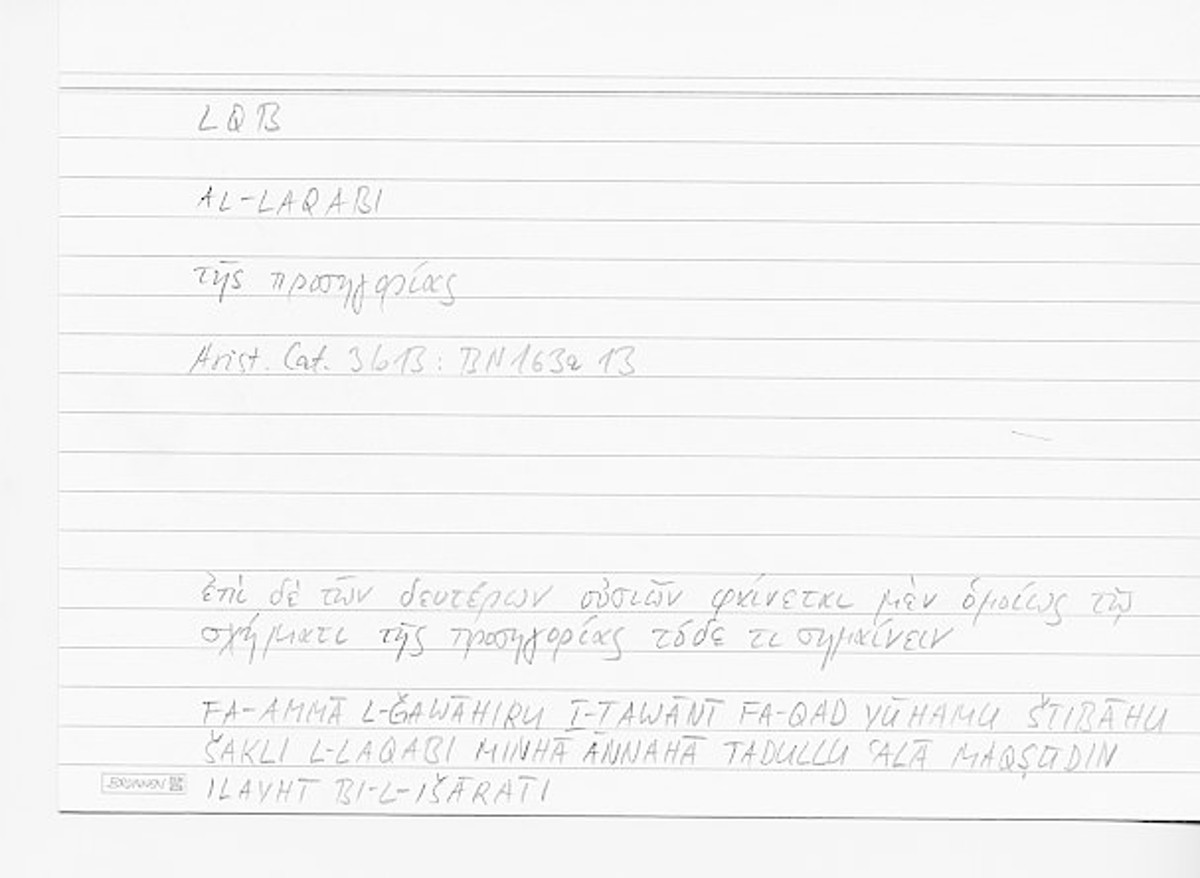 LQB
AL-LAQABI
τῆς προσηγορίας
Arist. Cat. 3b13 : BN 163a 13
ἐπὶ δὲ τῶν δευτέρων οὐσιῶν φαίνεται μὲν ὁμοίως τῷ
σχήματι τῆς προσηγορίας τόδε τι σημαίνειν
FA-AMMĀ L-ǦAWĀHIRU Ṯ-ṮAWĀNĪ FA-QAD YŪHAMU ŠTIBĀHU
ŠAKLI L-LAQABI MINHĀ ANNAHĀ TADULLU ʿALĀ MAQṢŪDIN
BRUNNEN ILAYHI BI-L-IŠĀRATI